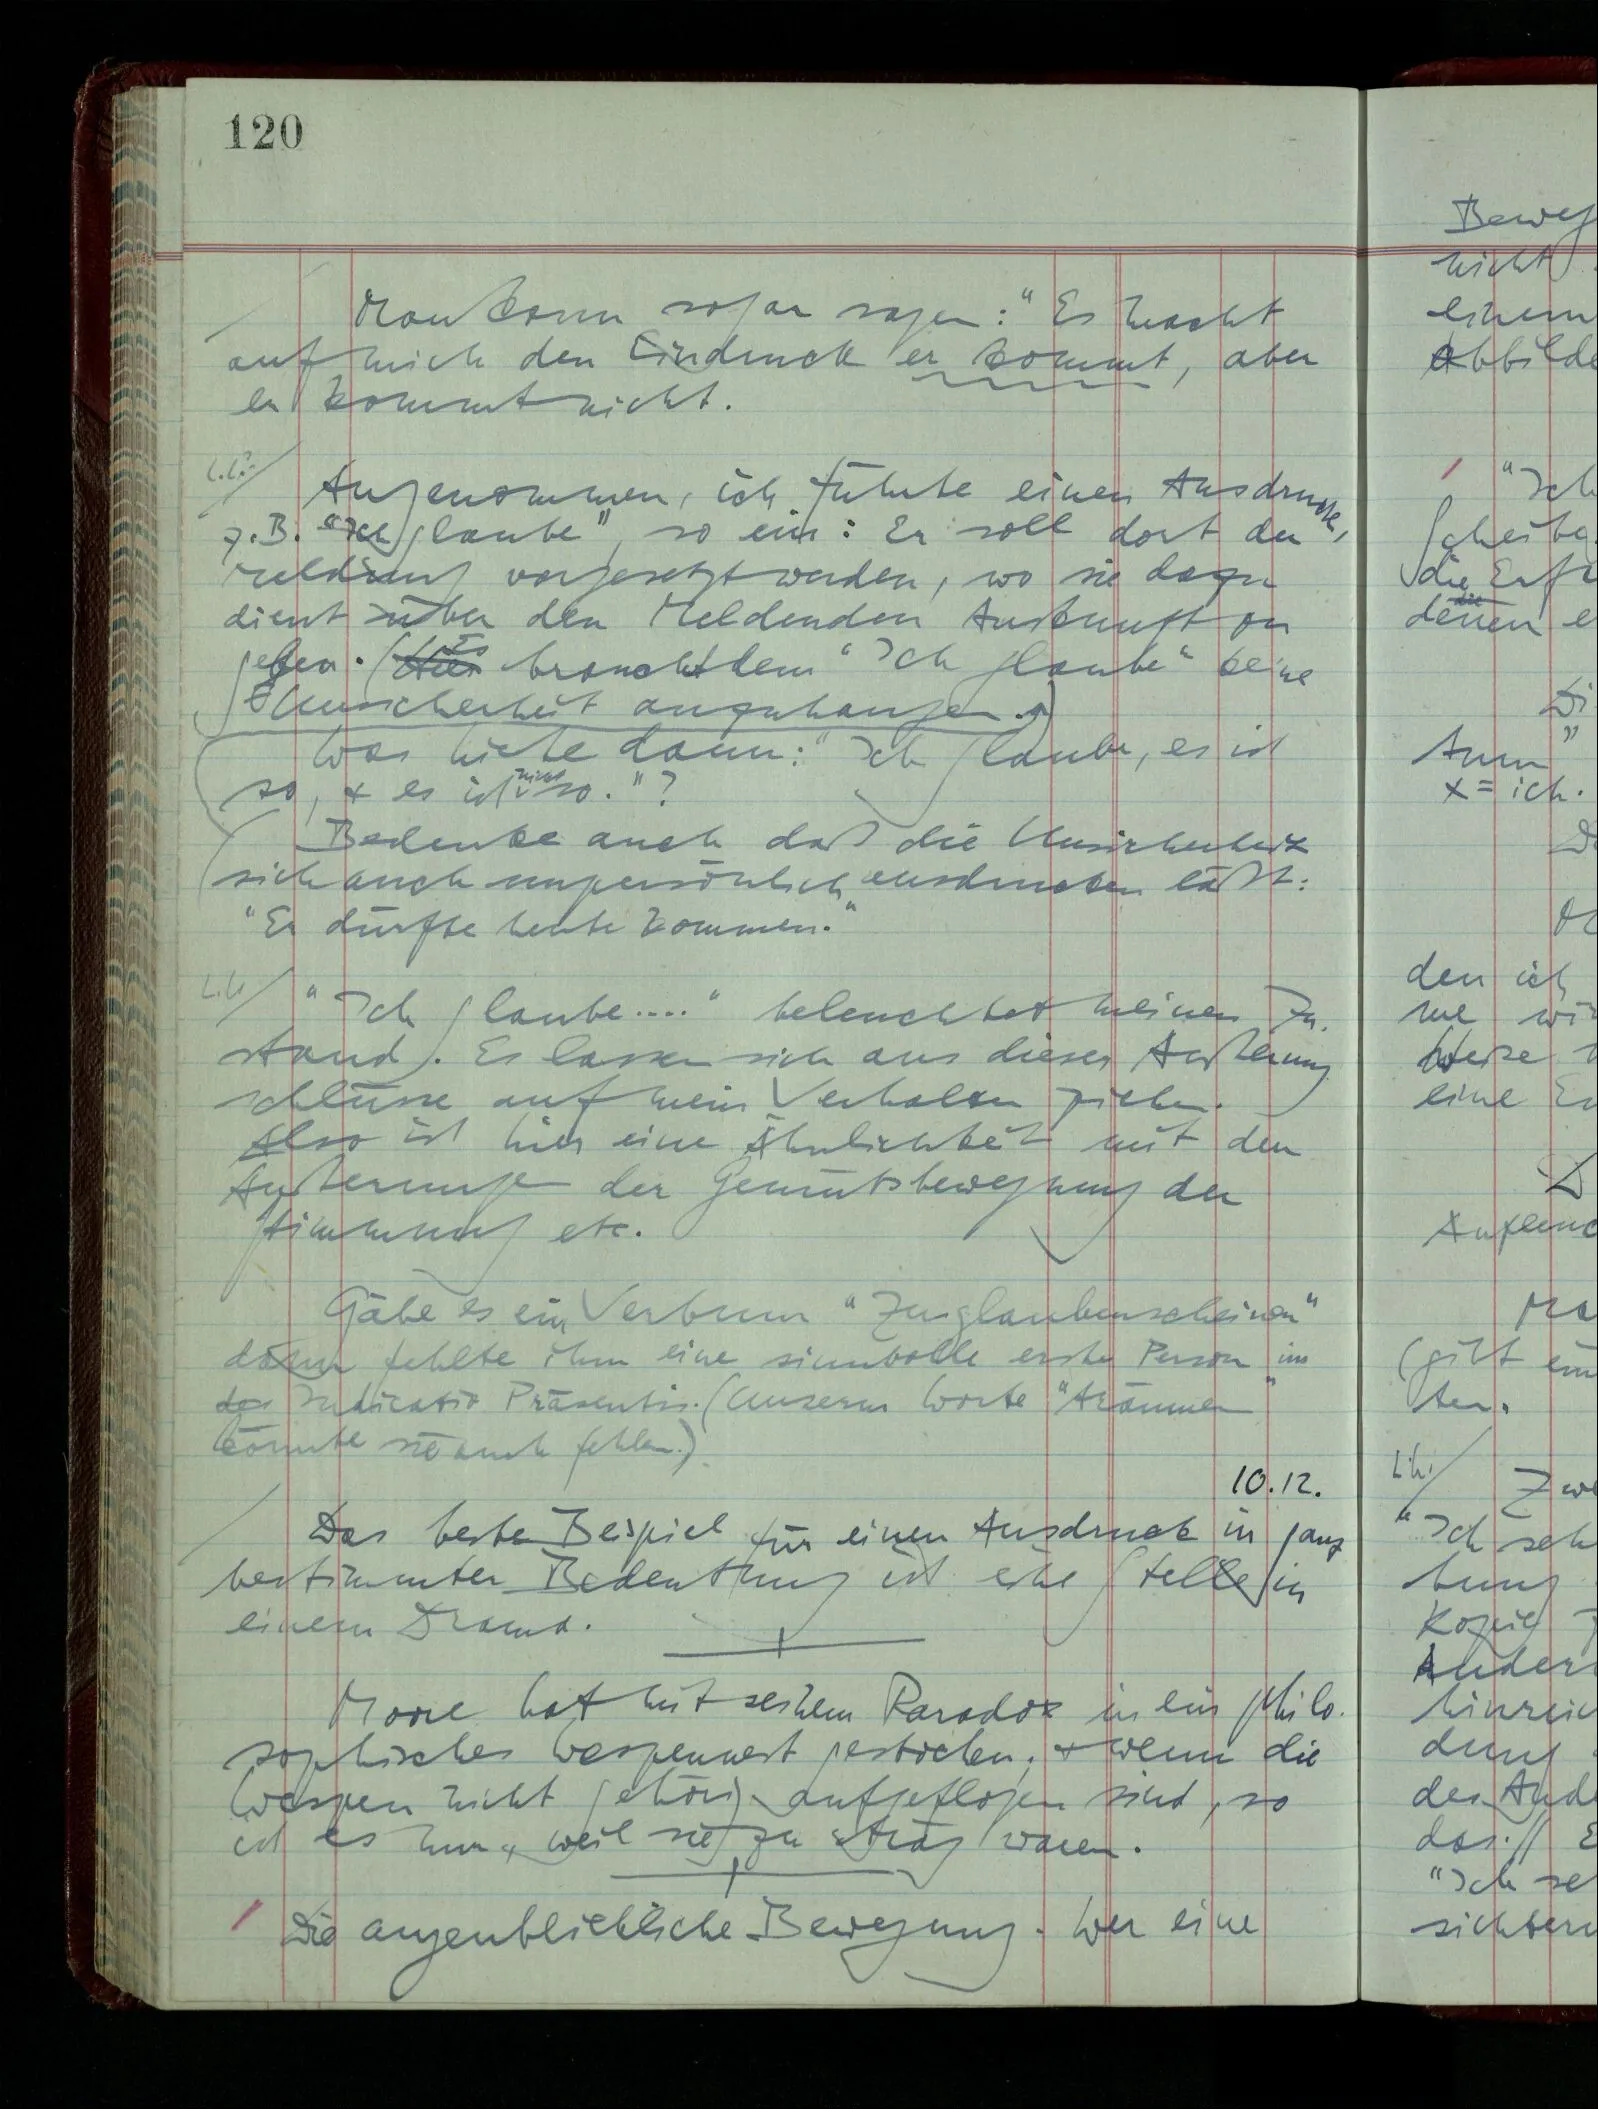 120
Man kann sogar sagen: "Es macht
auf mich den Eindruck er kommt, aber
er kommt nicht.
Angenommen, ich führte einen Ausdruck,
z.B. "Ich glaube", so ein: Er soll dort der
Meldung vorgesetzt werden, wo sie dazu
dient über den Meldenden Auskunft zu
geben. (Es braucht dem "Ich glaube" keine
Unsicherheit anzuhangen.)
Was hieße dann: "Ich glaube, es ist
so, & es ist nicht so."?
Bedenke auch daß die Unsicherheit
sich auch unpersönlich ausdrücken läßt:
"Er dürfte heute kommen."
"Ich glaube...." beleuchtet meinen Zu-
stand. Es lassen sich aus dieser Äußerung
Schlüsse auf mein Verhalten ziehen.
Also ist hier eine Ähnlichkeit mit den
Äußerungen der Gemütsbewegung der
Stimmung etc.
Gäbe es ein Verbum "Zuglaubenscheinen"
dann fehlte ihm eine sinnvolle erste Person im
Indicativ Präsentis. (Unserm Worte "träumen"
könnte sie auch fehlen.)
10.12.
Das beste Beispiel für einen Ausdruck in ganz
bestimmter Bedeutung ist eine Stelle in
einem Drama.
Moore hat mit seinem Paradox in ein philo-
sophisches Wespennest gestochen; & wenn die
Wespen nicht gehörig aufgeflogen sind, so
ist es nur, weil sie zu träg waren.
Die augenblickliche Bewegung. Wer eine
Beweg
nicht
einem
Abbilde
"Ich
die
denen
x = ich.
den ich
me
Weise
eine
(gilt
ten.
Zwe
"Ich seh
bung
Kopie
Andern
hinreich
dung
das.//
"Ich se
sichtern